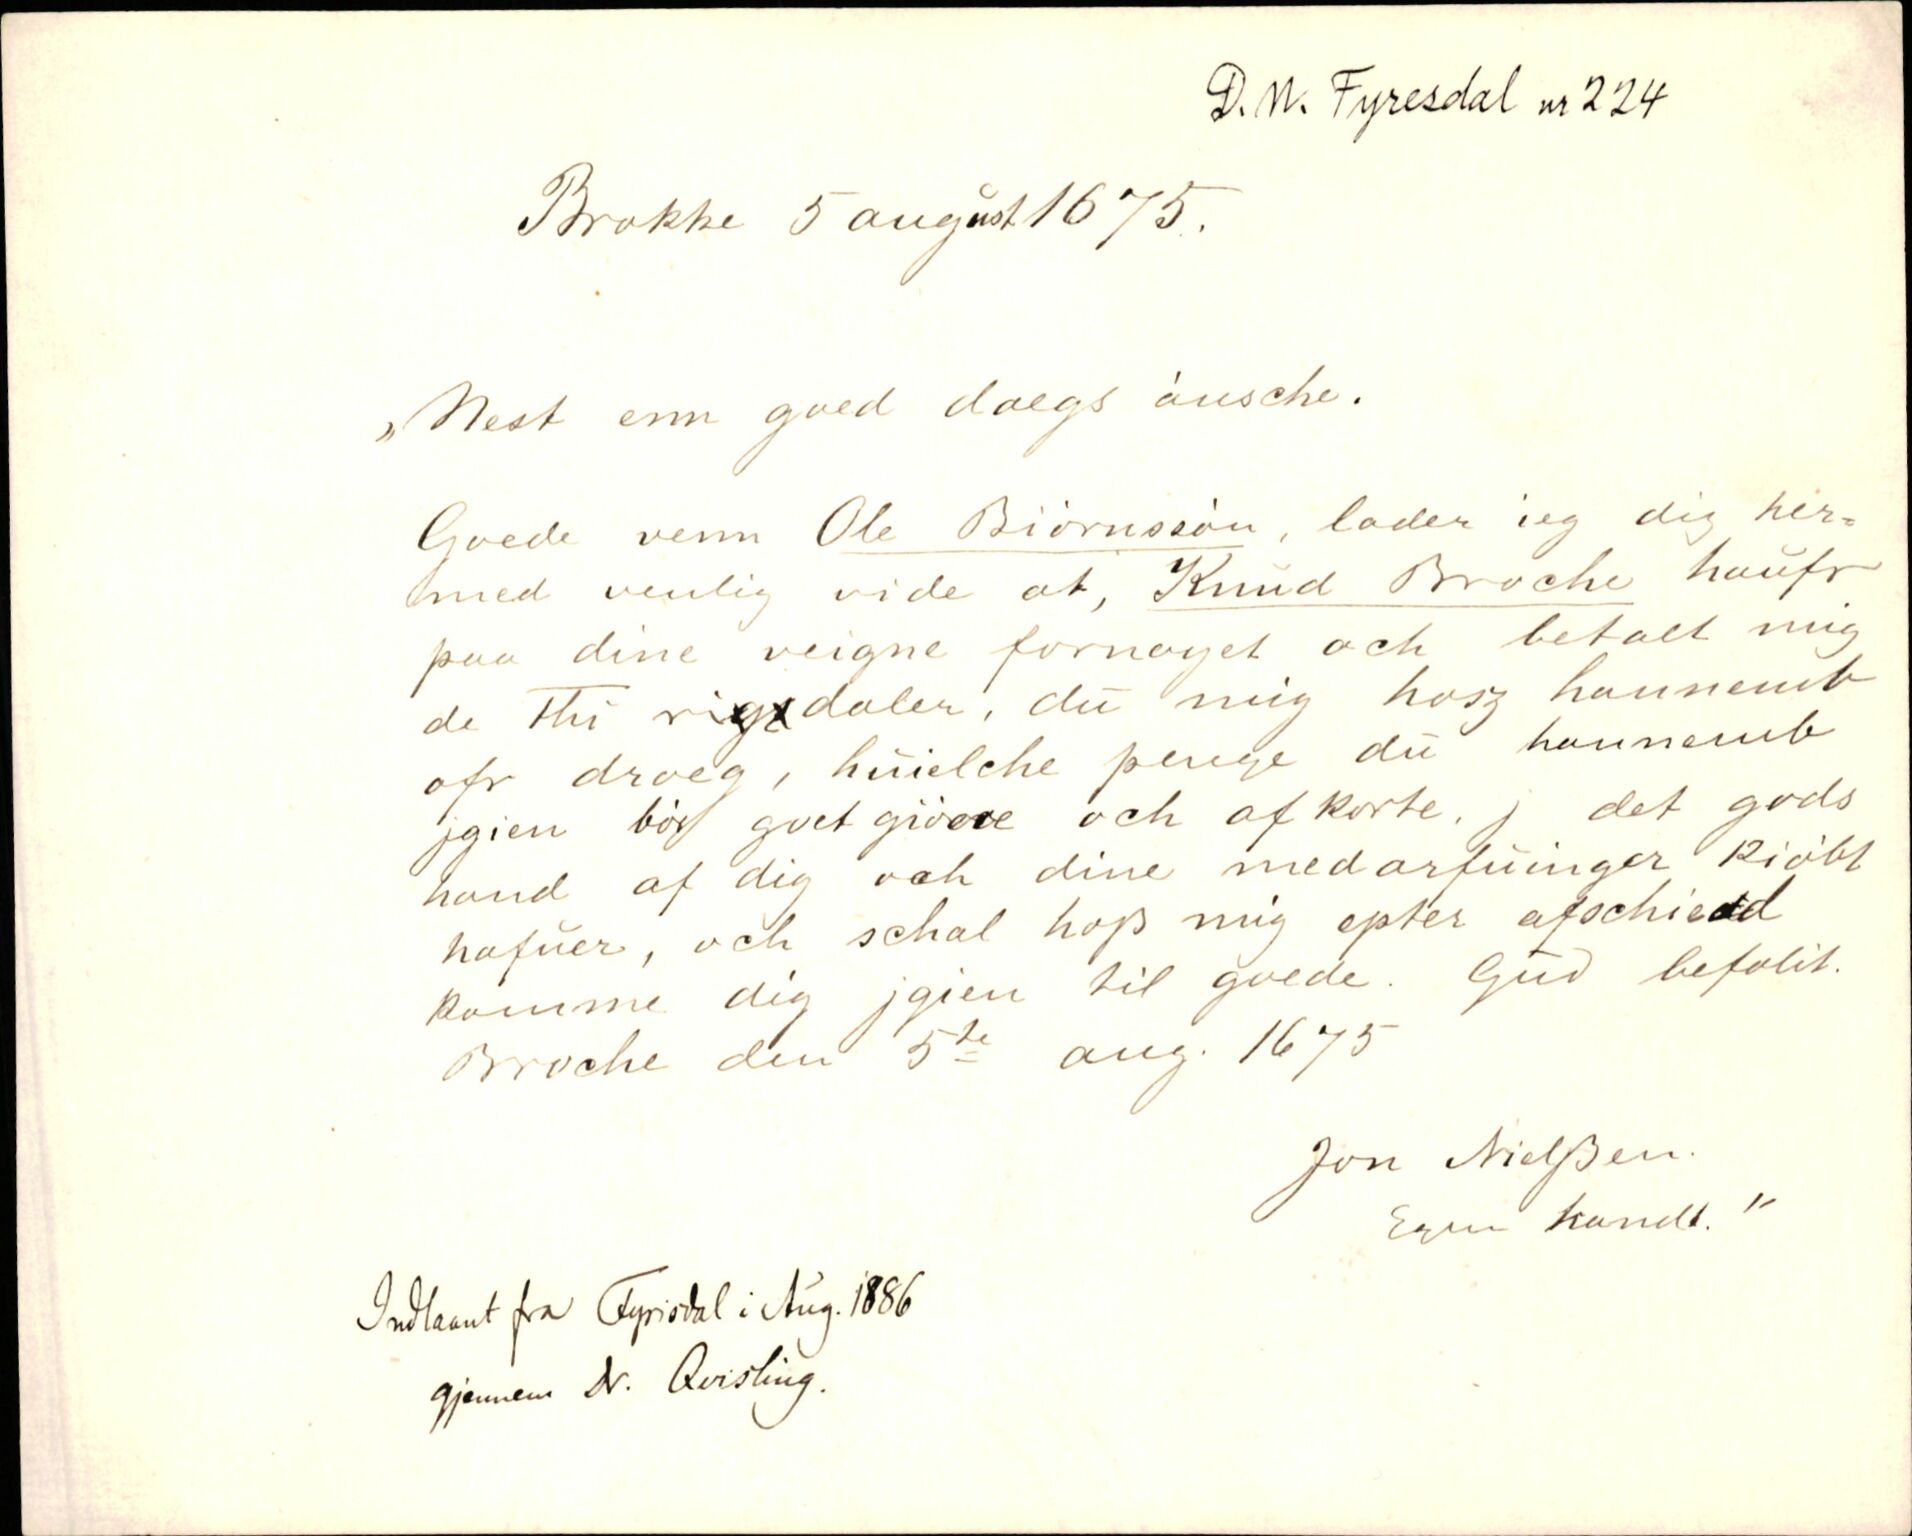 D. N. Fyresdal nr 224
Brokke 5 august 1675.
„Nest enn goed daegs ònsche.
Goede venn Ole Biòrnssòn, lader ieg dig her=
med venlig vide at, Knud Broche haufr
paa dine veigne fornøyet och betalt mig
de thi rixdaler, du mig hosz hannemb
ofr droeg, huielche penge du hannemb
jgien bòr goet giòere och afkorte. j det gods
hand af dig och dine medarfuinger kiòbt
hafuer, och schal hoß mig epter afschied
komme dig jgien til goede. Gud befalit.
Broche den 5te aug. 1675
Jon Nielßen.
Egen handt."
Indlaant fra Fyrisdal i Aug. 1886
gjennem Dr. Qvisling.